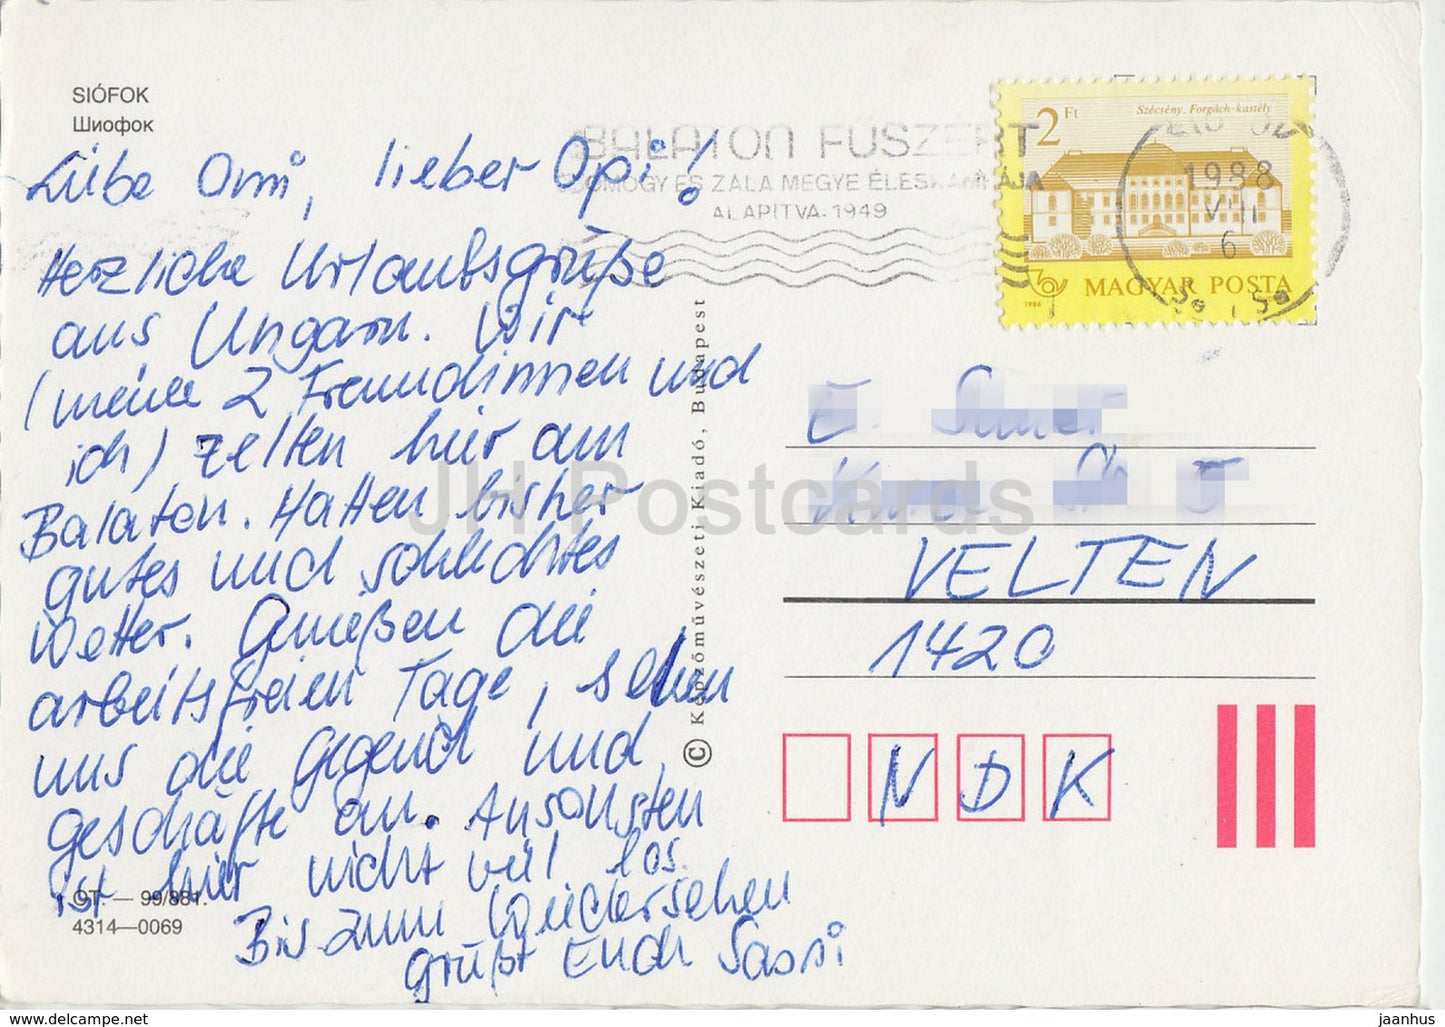 SIÓFOK
Шиофок
Liebe Omi, lieber Opi!
Herzliche Urlaubsgrüße
aus Ungarn. Wir
(meine 2 Freundinnen und
ich) zelten hier am
Balaton. Hatten bisher
gutes und schlechtes
Wetter. Genießen die
arbeitsfreien Tage, sehen
uns die Gegend und
Geschäfte an. Ansonsten
ist hier nicht viel los.
Bis zum Wiedersehen
grüßt Euch Sassi
99/881.
4314—0069
© Képzőművészeti Kiadó, Budapest
BALATON FŰSZERT
SOMOGY ÉS ZALA MEGYE ÉLÉSKAMRÁJA
ALAPÍTVA: 1949
2 Ft
Szécsény, Forgách-kastély
MAGYAR POSTA
1986
1988
VIII
6
VELTEN
1420
NDK
JH Postcards
www.jaanhus-post-card.net
jaanhus